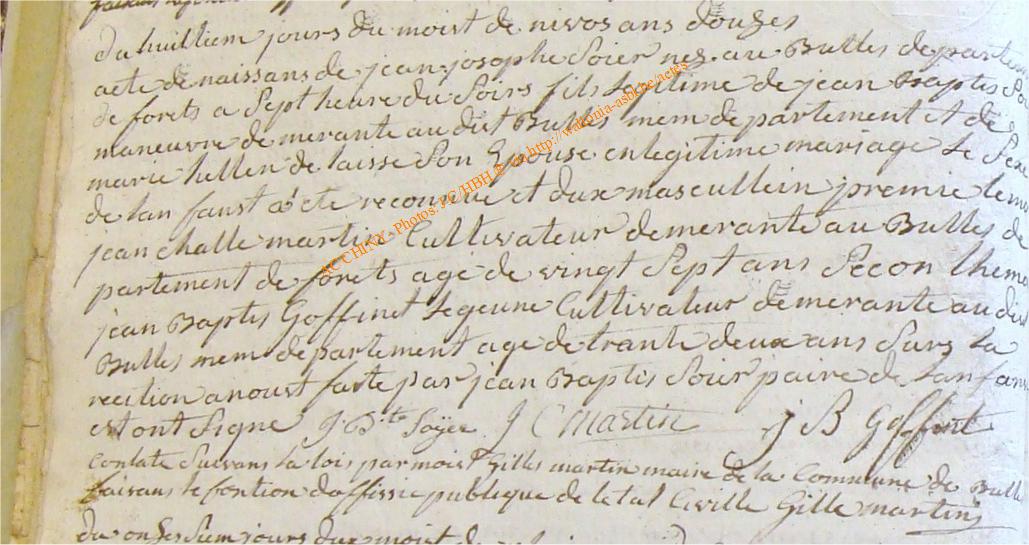 du huittiem jours du moist de nivos ans douzes
acte de naissans de jean josophe Soier nez au Bulles departem
de forets a Sept heure du Soirs fils Legitime de jean Baptis So
maneuvre demerante au dit Bulles mem departement et de
marie hellen de laisse Son Epouse en legitime mariage Le Sexe
de lan fanst a été reconnue et dux mascullein premie temo
jean challe martin Cultivateur demerante au Bulles de
partement de forets agé de vingt Sept ans Secon theme
jean Baptis Goffinet Legeune Cultivateur demerante au dist
Bulles mem departement age de trante deux ans Surs La
recition a noust faste par jean Baptis Soier paire de Lanfans
est ont Signe J Bte Soÿer J C Martin j B Goffint
Contate Suivans La lois par moist Gilles martin maire de La Commune de Bulle
faisans le fontion doffissie publique de letat Civille Gille martin
du onzes Siem jours dux moist de
AC CHINY - Photos: PC/HBH © de http://wallonia-asbl.be/actes